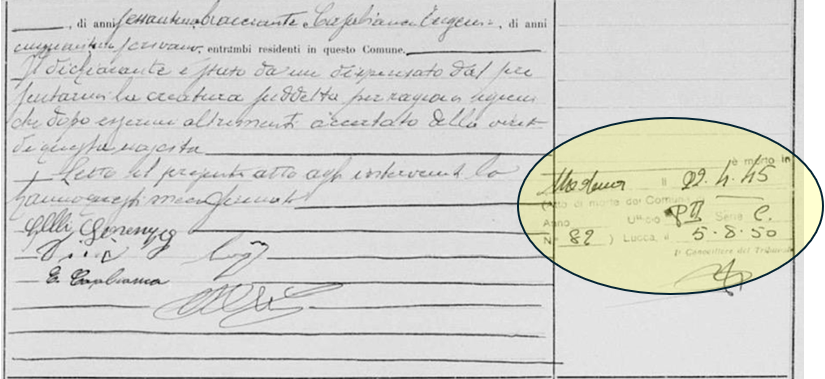 , di anni sessantuno, bracciante e Capbianco Eugenio, di anni
cinquantuno, scrivano, entrambi residenti in questo Comune.
Il dichiarante è stato da me dispensato dal pre
sentarmi la creatura suddetta per ragioni igieni
che dopo essermi altrimenti accertato della verità
di questa nascita
Letto il presente atto agli intervenuti lo
hanno questi meco firmato
Gelli Lorenzo
Luigi
E. Capbianco
è morto in
Modena il 22.4.45
(Atto di morte del Comune
Anno Ufficio P II Serie C.
N° 82 ) Lucca, il 5-8-50
Il Cancelliere del Tribunale